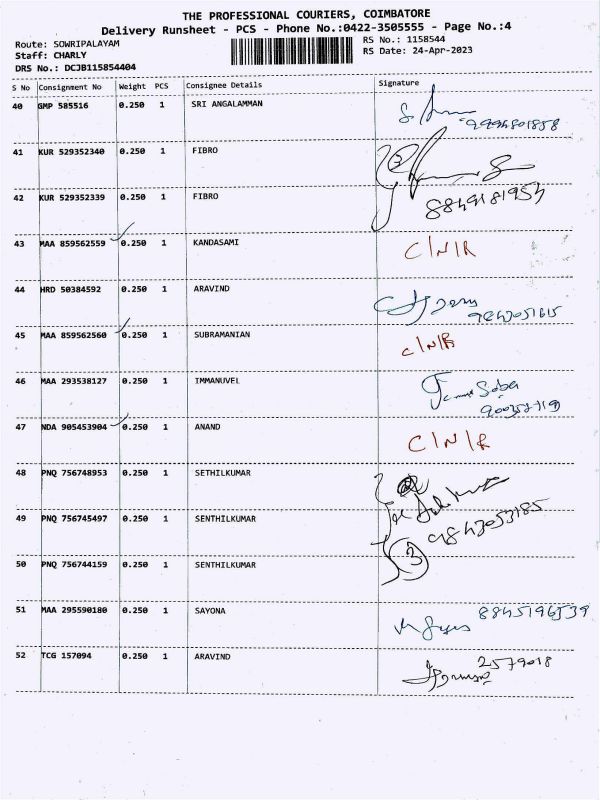 THE PROFESSIONAL COURIERS, COIMBATORE
Delivery Runsheet - PCS - Phone No.:0422-3505555 - Page No.:4
Route: SOWRIPALAYAM RS No.: 1158544
Staff: CHARLY RS Date: 24-Apr-2023
DRS No.: DCJB115854404
S No Consignment No Weight PCS Consignee Details Signature
40 GMP 585516 0.250 1 SRI ANGALAMMAN
9994801858
41 KUR 529352340 0.250 1 FIBRO
42 KUR 529352339 0.250 1 FIBRO
8849181954
43 MAA 859562559 0.250 1 KANDASAMI C/N/R
44 HRD 50384592 0.250 1 ARAVIND
45 MAA 859562560 0.250 1 SUBRAMANIAN C/N/R
46 MAA 293538127 0.250 1 IMMANUVEL
47 NDA 905453904 0.250 1 ANAND C/N/R
48 PNQ 756748953 0.250 1 SETHILKUMAR
49 PNQ 756745497 0.250 1 SENTHILKUMAR
9843053185
50 PNQ 756744159 0.250 1 SENTHILKUMAR 3
51 MAA 295590180 0.250 1 SAYONA 8845196539
52 TCG 157094 0.250 1 ARAVIND 2579018